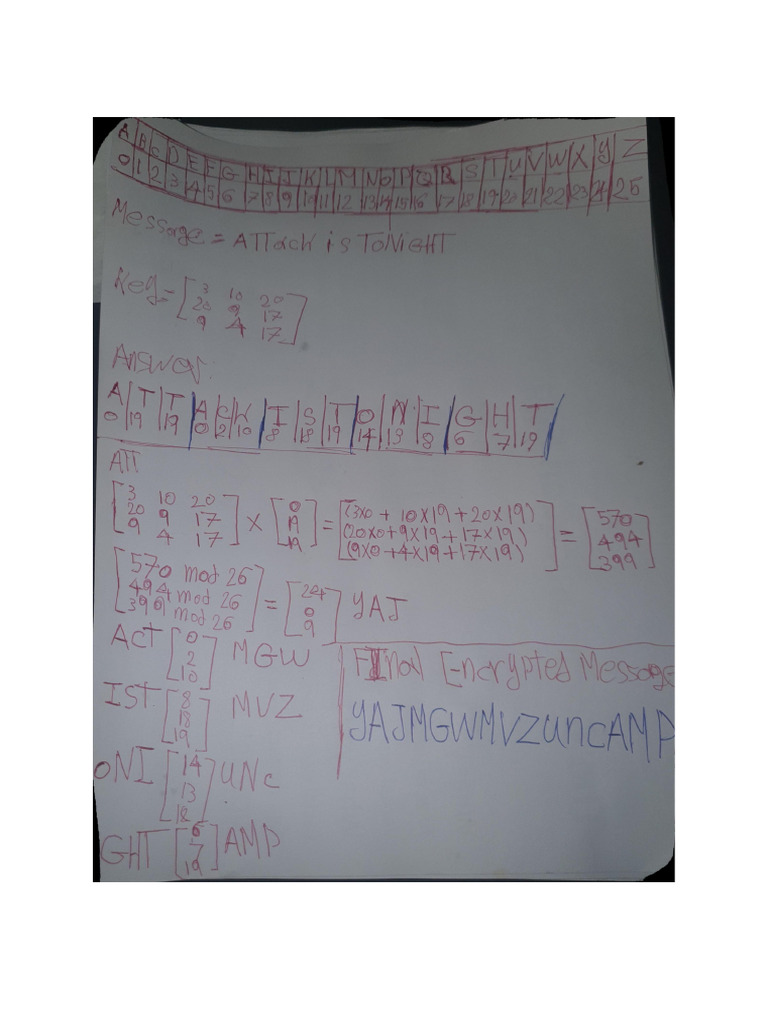 A B C D E F G H I J K L M N O P Q R S T U V W X Y Z
0 1 2 3 4 5 6 7 8 9 10 11 12 13 14 15 16 17 18 19 20 21 22 23 24 25
Message = ATTack is ToNiGHT
Key = [3 10 20
20 9 17
9 4 17]
Answer:
A T T A C K I S T O N I G H T
0 19 19 0 2 10 8 18 19 14 13 8 6 7 19
ATT
[3 10 20] [0] [(3x0 + 10x19 + 20x19)] [570]
[20 9 17] x [19] = [(20x0 + 9x19 + 17x19)] = [494]
[9 4 17] [19] [(9x0 + 4x19 + 17x19)] [399]
[570 mod 26] [24]
[494 mod 26] = [0] YAJ
[399 mod 26] [9]
ACT [0 2 10] MGW
IST [8 18 19] MVZ
ONI [14 13 18] UNC
GHT [6 7 19] AMP
FINal Encrypted Message
YAJMGWMVZUNCAMP